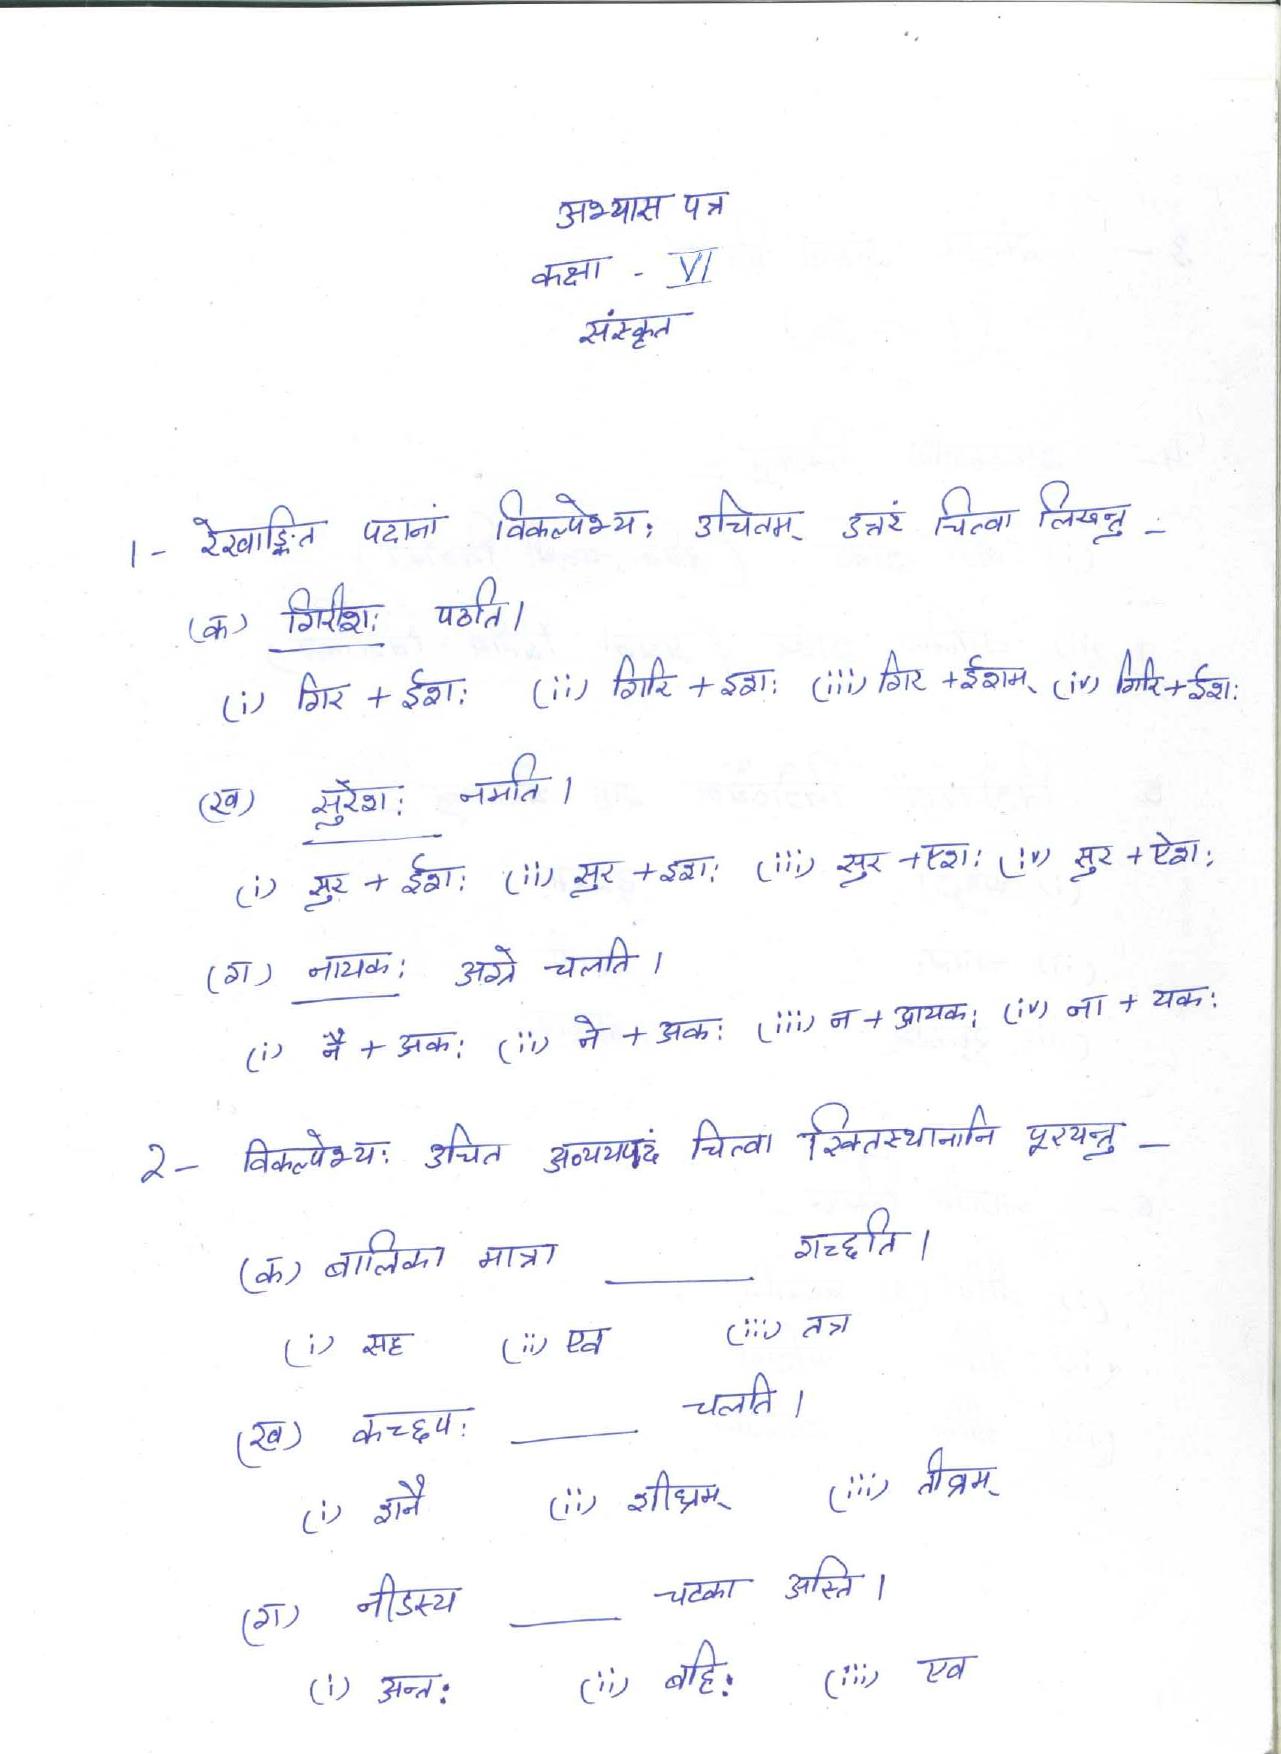 अभ्यास पत्र
कक्षा - VI
संस्कृत
1- रेखाङ्कित पदानां विकल्पेभ्यः उचितम् उत्तरं चित्वा लिखन्तु –
(क) गिरीशः पठति।
(i) गिर + ईशः (ii) गिरि + इशः (iii) गिर + ईशम् (iv) गिरि + ईशः
(ख) सुरेशः नमति।
(i) सुर + ईशः (ii) सुर + इशः (iii) सुर + एशः (iv) सुर + ऐशः
(ग) नायकः अग्रे चलति।
(i) नै + अकः (ii) ने + अकः (iii) न + आयकः (iv) ना + यकः
2- विकल्पेभ्यः उचित अव्ययपदं चित्वा रिक्तस्थानानि पूरयन्तु –
(क) बालिका मात्रा ______ गच्छति।
(i) सह (ii) एव (iii) तत्र
(ख) कच्छपः ______ चलति।
(i) शनै (ii) शीघ्रम् (iii) तीव्रम्
(ग) नीडस्य ______ चटका अस्ति।
(i) अन्तः (ii) बहिः (iii) एव